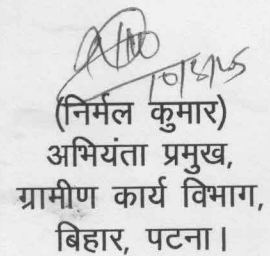 (निर्मल कुमार)
अभियंता प्रमुख,
ग्रामीण कार्य विभाग,
बिहार, पटना।